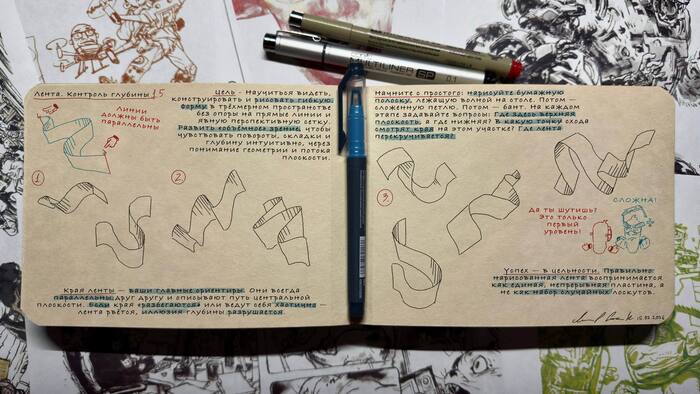 Лента. Контроль глубины 15
Линии
должны быть
параллельны
Цель - Научиться видеть,
конструировать и рисовать гибкую
форму в трёхмерном пространстве
без опоры на прямые линии и
явную перспективную сетку.
Развить «объёмное зрение, чтобы
чувствовать повороты, складки и
глубину интуитивно, через
понимание геометрии и потока
плоскости.
1
2
Края ленты — ваши главные ориентиры. Они всегда
параллельны друг другу и описывают путь центральной
плоскости. Если края «разбегаются» или ведут себя хаотично —
лента рвётся, иллюзия глубины разрушается.
MULTILINER SP 0.1
Начните с простого: нарисуйте бумажную
полоску, лежащую волной на столе. Потом —
сложенную петлю. Потом — бант. На каждом
этапе задавайте вопросы: Где здесь верхняя
плоскость, а где нижняя? В какую точку схода
смотрят края на этом участке? Где лента
перекручивается?
3.
Да ты шутишь?
Это только
первый
уровень!
СЛОЖНА!
Успех — в цельности. Правильно
нарисованная лента воспринимается
как единая, непрерывная пластина, а
не как набор случайных лоскутов.
15.02.2026